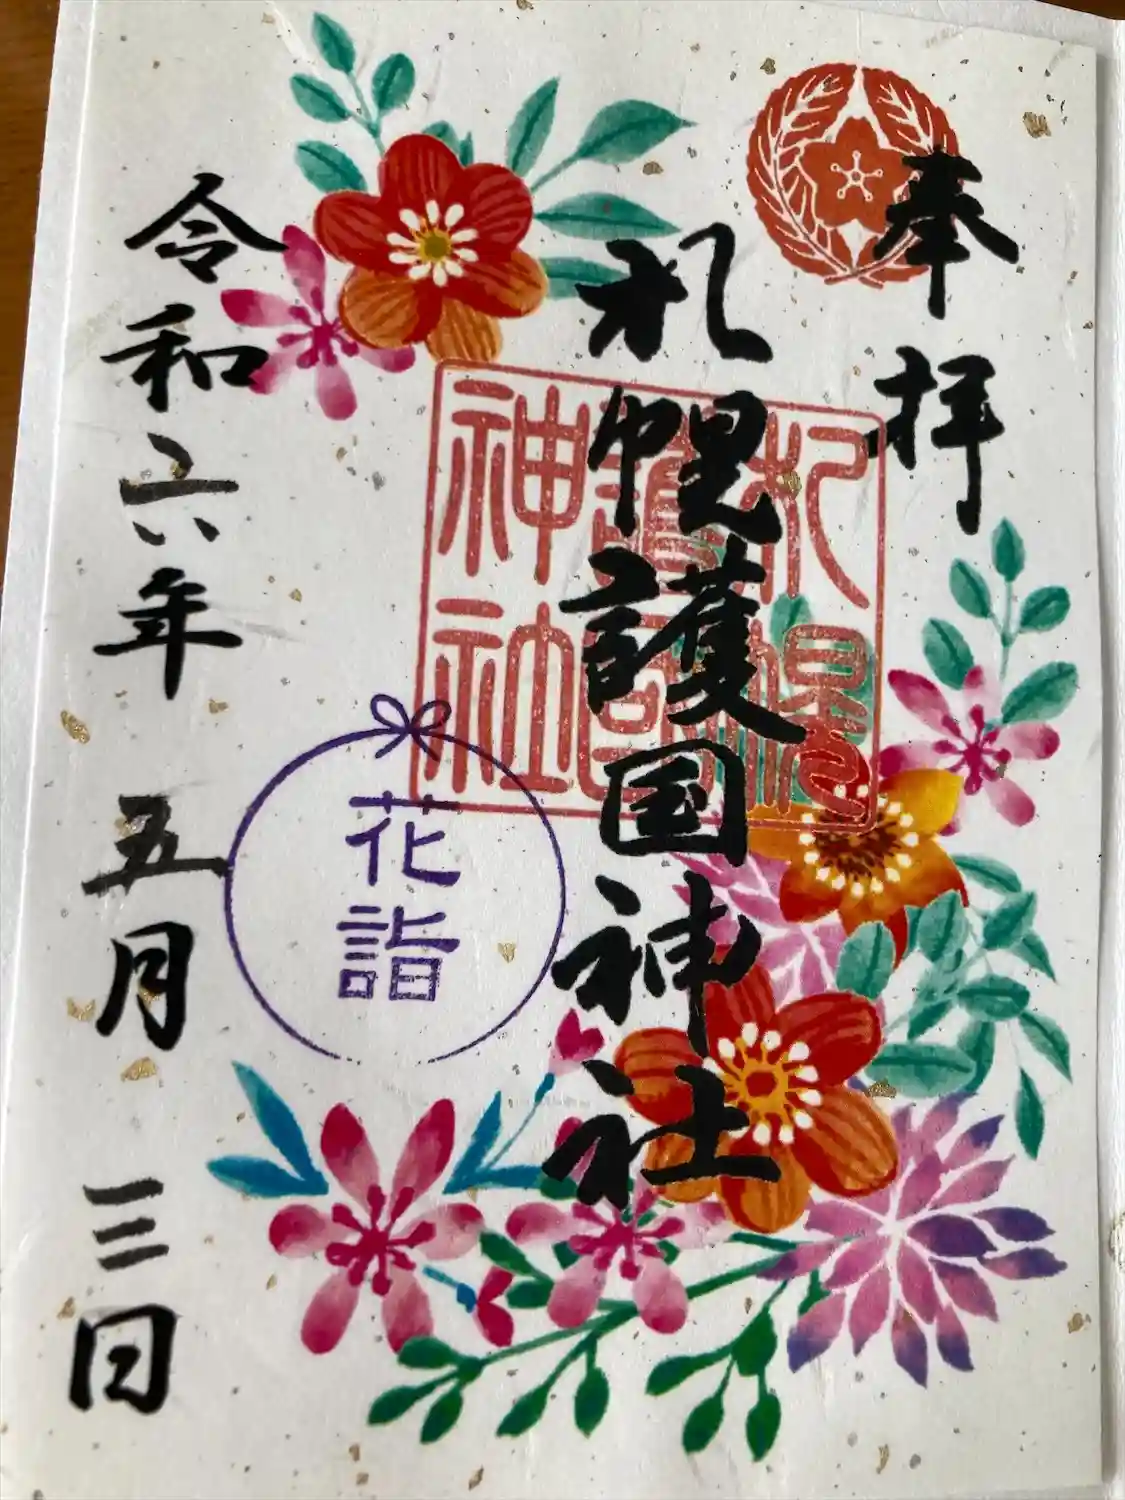 奉拝
札幌護国神社
札幌護国神社
花詣
令和六年 五月 三日